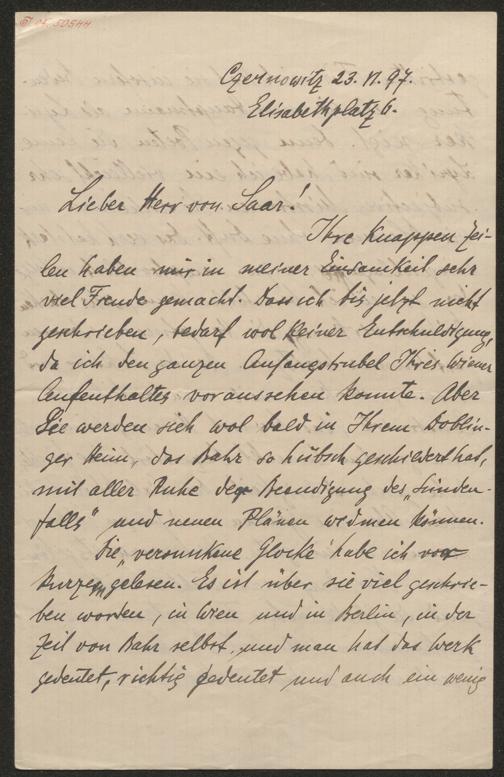 Czernowitz 23. VI. 97.
Elisabethplatz 6.
Lieber Herr von Saar!
Ihre knappen Zei-
len haben mir in meiner Einsamkeit sehr
viel Freude gemacht. Dass ich bis jetzt nicht
geschrieben, bedarf wol keiner Entschuldigung,
da ich den ganzen Anfangstrubel Ihres Wiener
Aufenthaltes voraussehen konnte. Aber
Sie werden sich wol bald in Ihrem Döblin-
ger Heim, das Bahr so hübsch geschildert hat,
mit aller Ruhe der Beendigung des „Sünden-
falls" und neuen Plänen widmen können.
Die „versunkene Glocke" habe ich vor
Kurzem gelesen. Es ist über sie viel geschrie-
ben worden, in Wien und in Berlin, in der
Zeit von Bahr selbst, und man hat das Werk
gedeutet, richtig gedeutet und auch ein wenig